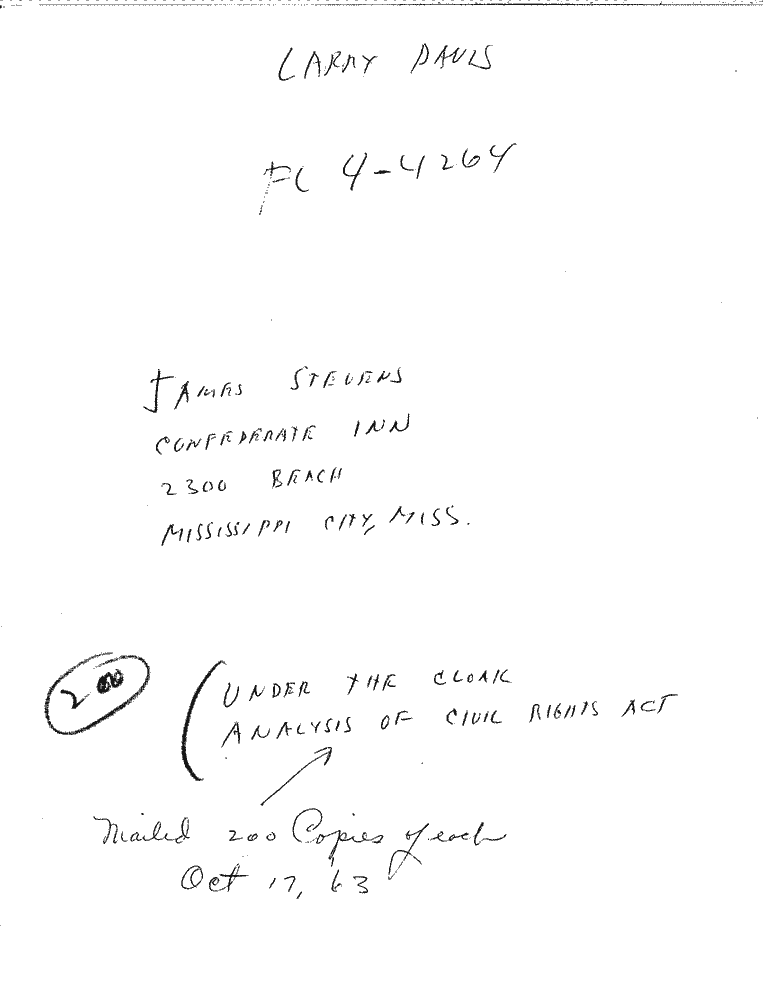 LARRY DAVIS
FL 4-4264
JAMES STEVENS
CONFEDERATE INN
2300 BEACH
MISSISSIPPI CITY, MISS.
200
UNDER THE CLOAK
ANALYSIS OF CIVIL RIGHTS ACT
Mailed 200 Copies of each
Oct 17, 63